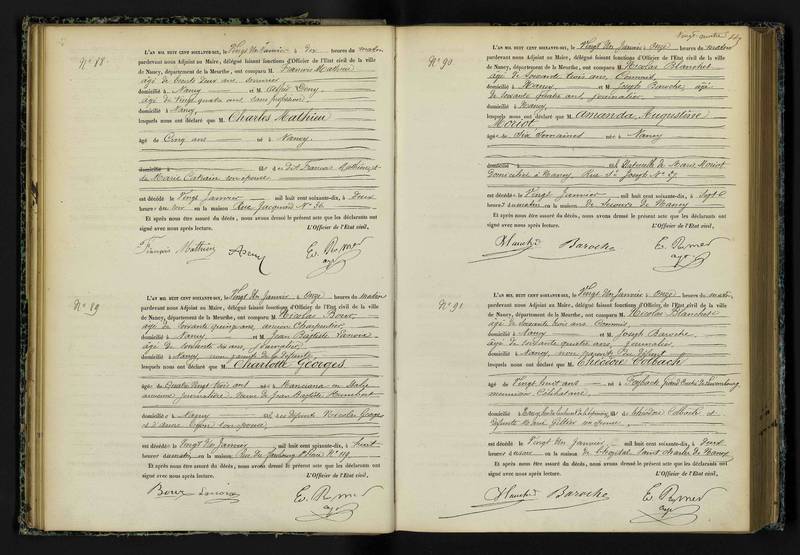 N° 88
L'AN MIL HUIT CENT SOIXANTE-DIX, le Vingt Un Janvier à Dix heures du matin
pardevant nous Adjoint au Maire, délégué faisant fonctions d'Officier de l'Etat civil de la ville
de Nancy, département de la Meurthe, ont comparu M. François Mathieu
âgé de trente deux ans,
domicilié à Nancy et M.
âgé de vingt quatre ans sans profession
domicilié à Nancy
lesquels nous ont déclaré que M. Charles Mathieu
âgé de Cinq ans né à Nancy
domicilié à fils de Dit François Mathieu et
de Marie son épouse
est décédé le Vingt Janvier mil huit cent soixante-dix, à Deux
heures du soir en la maison Rue N° 36
Et après nous être assuré du décès, nous avons dressé le présent acte que les déclarants ont
signé avec nous après lecture. L'Officier de l'Etat civil,
François Mathieu
N° 89
L'AN MIL HUIT CENT SOIXANTE-DIX, le Vingt Un Janvier à Onze heures du matin
pardevant nous Adjoint au Maire, délégué faisant fonctions d'Officier de l'Etat civil de la ville
de Nancy, département de la Meurthe, ont comparu M. Nicolas
âgé de soixante quinze ans, ancien Charpentier
domicilié à Nancy et M. Jean Baptiste
âgé de soixante six ans, Journalier
domicilié à Nancy, non parents de la défunte
lesquels nous ont déclaré que M. Charlotte Georges
âgée de Quatre Vingt trois ans née à en Italie
ancienne journalière Veuve de Jean Baptiste Humbert
domiciliée à Nancy fille des défunts Nicolas Georges
et d'Anne son épouse
est décédée le Vingt Un Janvier mil huit cent soixante-dix, à huit
heures du matin en la maison Rue du faubourg N° 119
Et après nous être assuré du décès, nous avons dressé le présent acte que les déclarants ont
signé avec nous après lecture. L'Officier de l'Etat civil,
Vingt-quatre
N° 90
L'AN MIL HUIT CENT SOIXANTE-DIX, le Vingt Un Janvier à Onze heures du matin
pardevant nous Adjoint au Maire, délégué faisant fonctions d'Officier de l'Etat civil de la ville
de Nancy, département de la Meurthe, ont comparu M. Nicolas Blanchet
âgé de Soixante trois ans, Commis
domicilié à Nancy et M. Joseph Baroche âgé
de soixante quatre ans, journalier
domicilié à Nancy
lesquels nous ont déclaré que M. Amanda Augustine
Moriot
âgée de Six Semaines née à Nancy
domicilié à fille naturelle de Marie Moriot
domiciliée à Nancy Rue St Joseph N° 37
est décédée le Vingt Janvier mil huit cent soixante-dix, à Sept
heures du matin en la maison de Secours de Nancy
Et après nous être assuré du décès, nous avons dressé le présent acte que les déclarants ont
signé avec nous après lecture. L'Officier de l'Etat civil,
Blanchet Baroche
N° 91
L'AN MIL HUIT CENT SOIXANTE-DIX, le Vingt Un Janvier à Onze heures du matin
pardevant nous Adjoint au Maire, délégué faisant fonctions d'Officier de l'Etat civil de la ville
de Nancy, département de la Meurthe, ont comparu M. Nicolas Blanchet
âgé de soixante trois ans Commis
domicilié à Nancy et M. Joseph Baroche
âgé de soixante quatre ans, journalier
domicilié à Nancy, non parents du défunt
lesquels nous ont déclaré que M. Théodore Colbach
âgé de Vingt huit ans né à Grand Duché de Luxembourg
menuisier Célibataire
domicilié à fils de Théodore Colbach et
défunte Marie son épouse
est décédé le Vingt Janvier mil huit cent soixante-dix, à deux
heures du soir en la maison de l'hôpital Saint Charles de Nancy
Et après nous être assuré du décès, nous avons dressé le présent acte que les déclarants ont
signé avec nous après lecture. L'Officier de l'Etat civil,
Blanchet Baroche